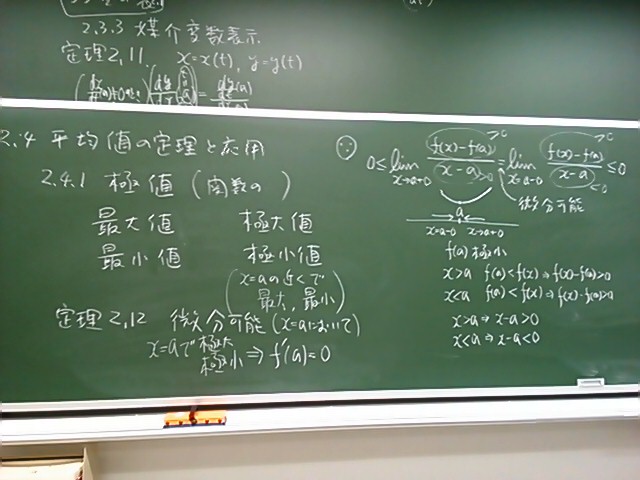 2.3.3 媒介変数表示
定理2.11. x=x(t), y=y(t)
2.4 平均値の定理と応用
2.4.1 極値 (関数の )
最大値 極大値
最小値 極小値
(x=aの近くで
最大, 最小)
定理2.12 微分可能 (x=aにおいて)
x=aで極大
極小 ⇒ f'(a)=0
0≤lim x→a+0 (f(x)-f(a))/(x-a) = lim x=a-0 (f(x)-f(a))/(x-a) ≤0
微分可能
a
x=a-0 x→a+0
f(a) 極小
x>a f(a)<f(x)⇒f(x)-f(a)>0
x<a f(a)<f(x)⇒f(x)-f(a)>0
x>a⇒x-a>0
x<a⇒x-a<0